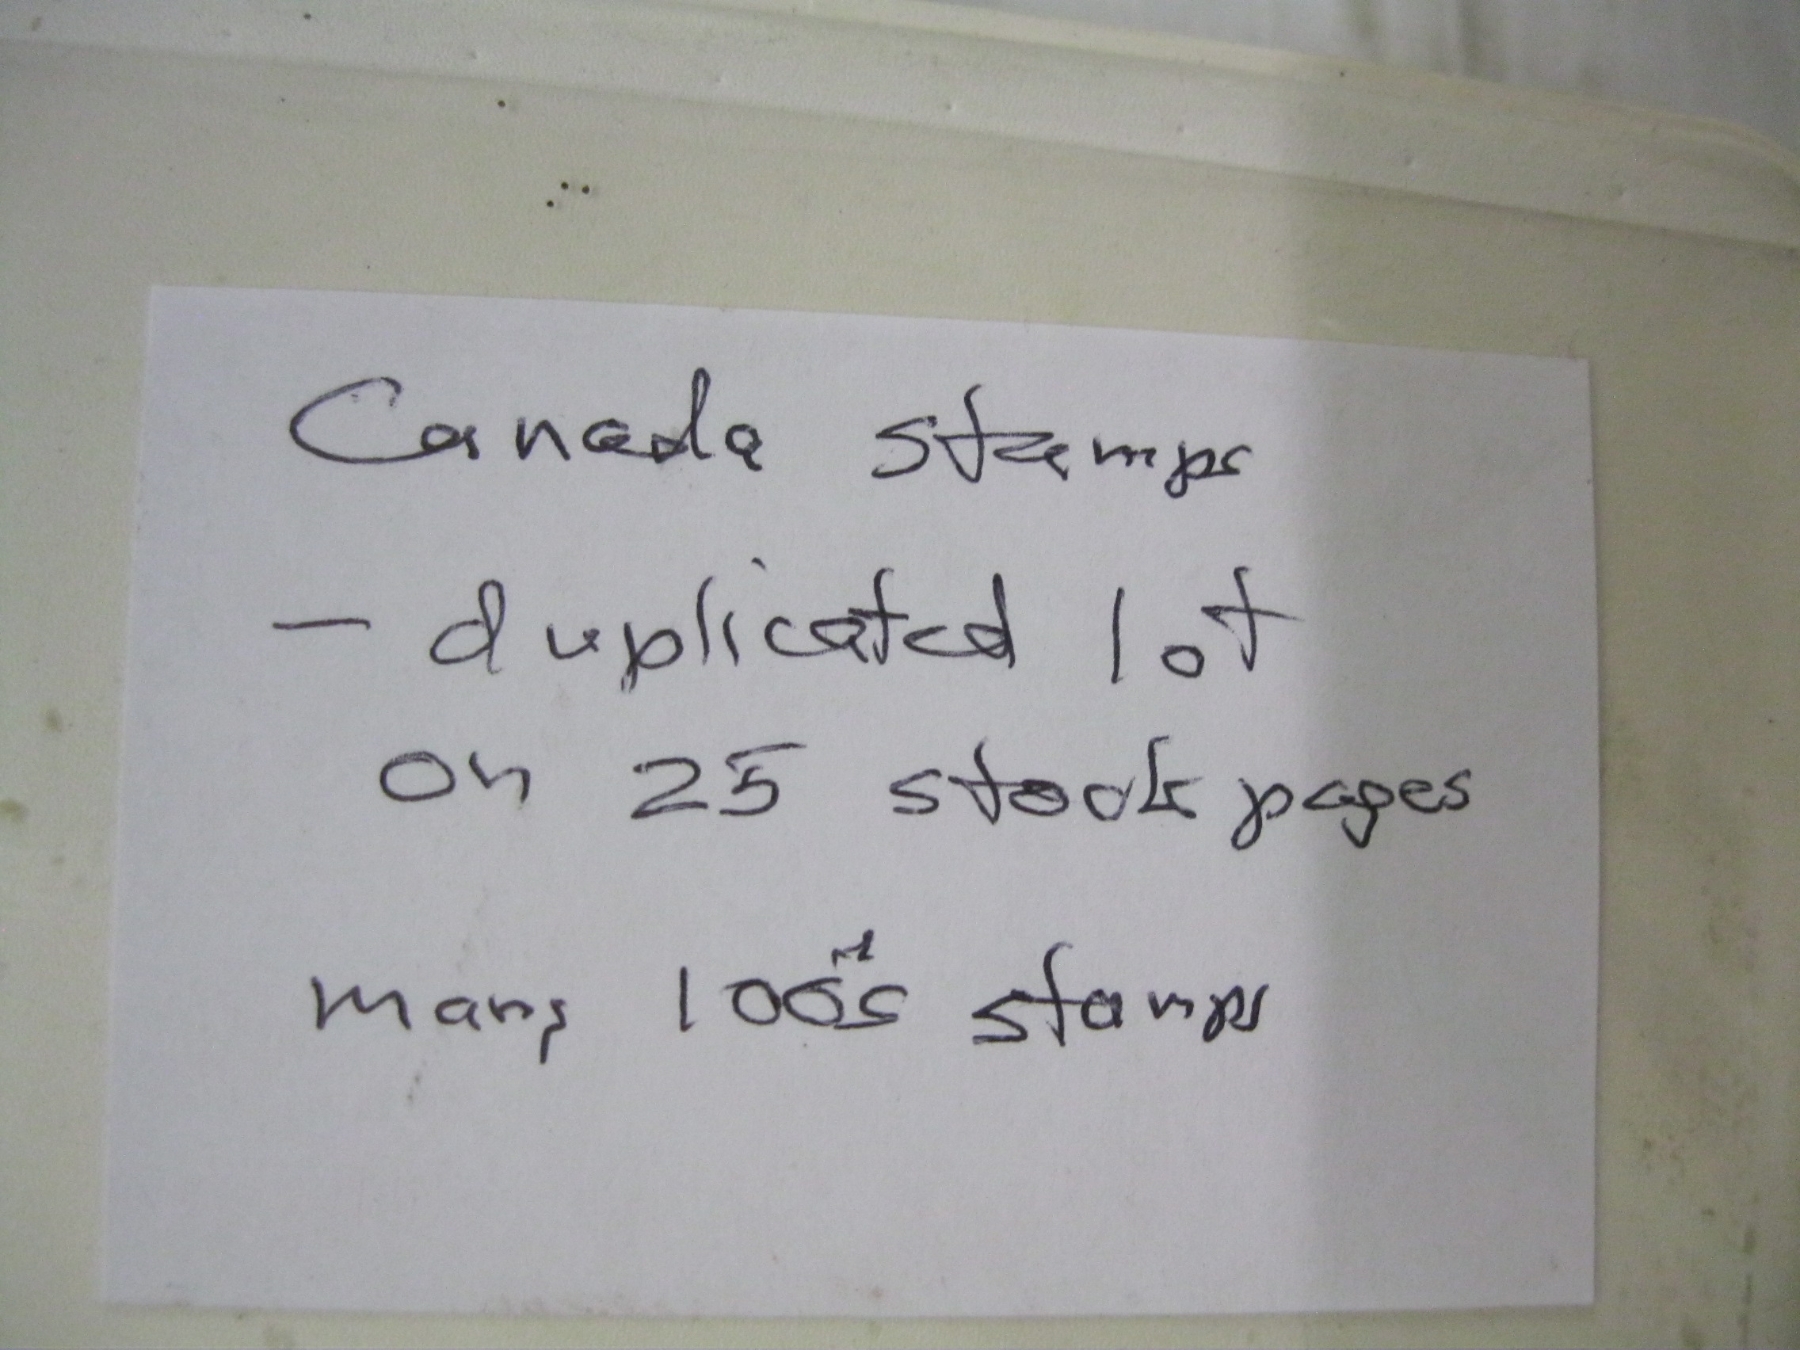 Canada stamps
- duplicated lot
on 25 stock pages
many 100s stamps